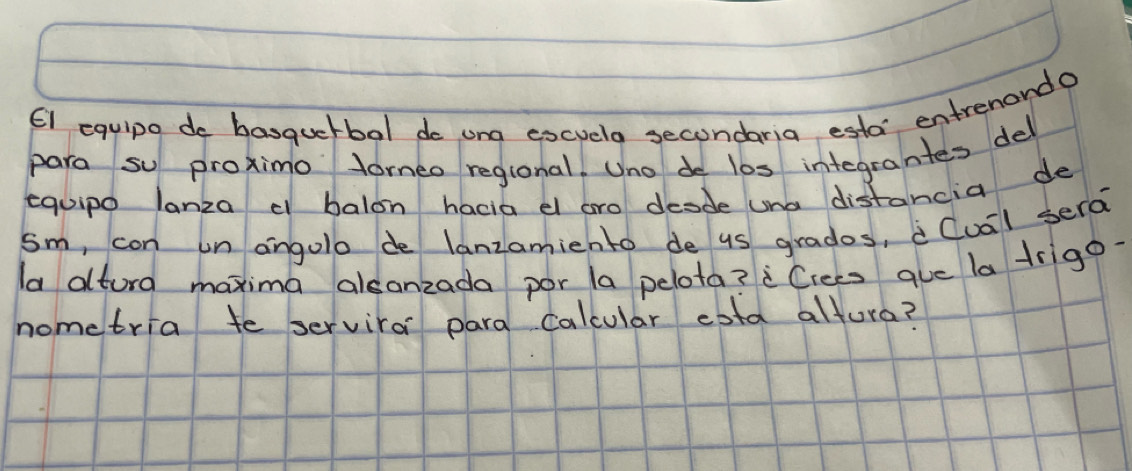 El equipo de basquetbol de una escuela secundaria está entrenando
para su proximo torneo regional. Uno de los integrantes del
equipo lanza el balón hacia el aro desde una distancia de
5m, con un ángulo de lanzamiento de 45 grados, ¿Cuál será
la altura máxima alcanzada por la pelota? ¿Crees que la trigo-
nometría te servirá para calcular esta altura?